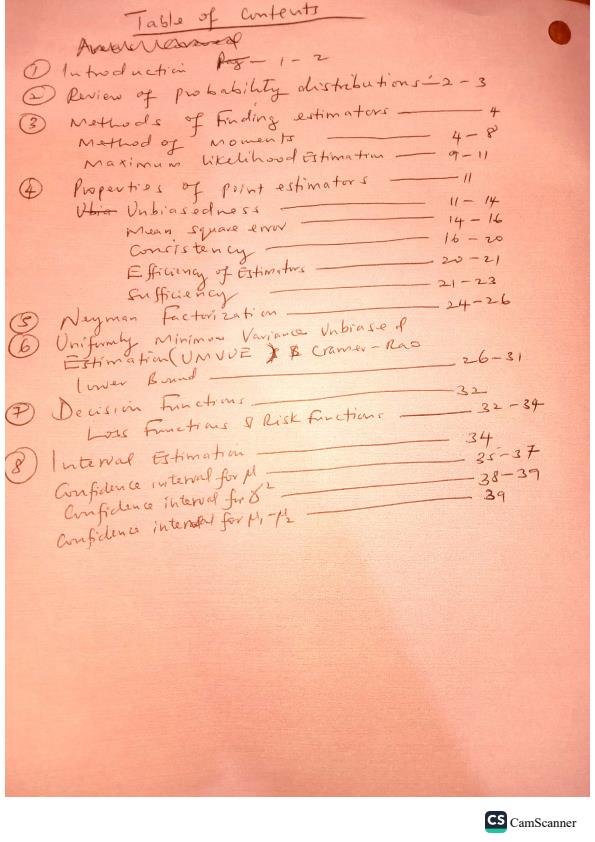 Table of Contents
① Introduction Pag — 1 - 2
② Review of probability distributions — 2 - 3
③ Methods of Finding estimators — 4
Method of Moments — 4 - 8
Maximum Likelihood Estimation — 9 - 11
④ Properties of point estimators — 11
Ubia Unbiasedness — 11 - 14
Mean square error — 14 - 16
Consistency — 16 - 20
Efficiency of Estimators — 20 - 21
Sufficiency — 21 - 23
⑤ Neyman Factorization — 24 - 26
⑥ Uniformly Minimum Variance Unbiased
Estimation (UMVUE) & Cramer - Rao
Lower Bound — 26 - 31
⑦ Decision Functions — 32
Loss Functions & Risk Functions — 32 - 34
⑧ Interval Estimation — 34
Confidence interval for μ — 35 - 37
Confidence interval for σ² — 38 - 39
Confidence interval for μ₁ - μ₂ — 39
CS CamScanner